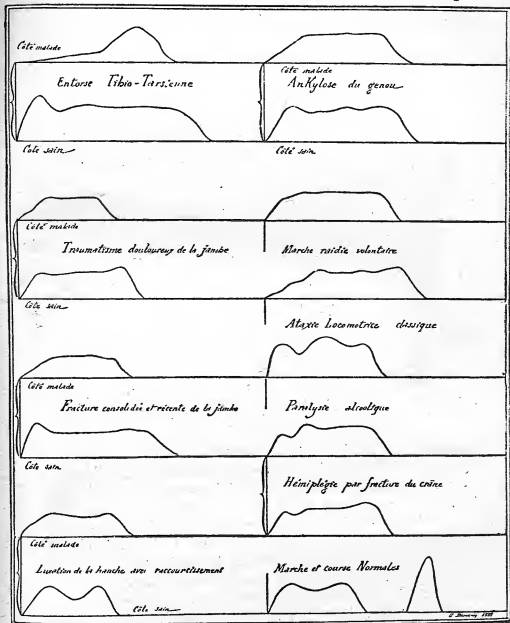 Côté malade
Entorse Tibio-Tarsienne
Côté sain
Côté malade
Traumatisme douloureux de la jambe
Côté sain
Côté malade
Fracture consolidée et récente de la jambe
Côté sain
Côté malade
Luxation de la hanche avec raccourcissement
Côté sain
Côté malade
AnKylose du genou
Côté sain
Marche raidie volontaire
Ataxie Locomotrice classique
Paralysie alcoolique
Hémiplégie par fracture du crâne
Marche et course Normales